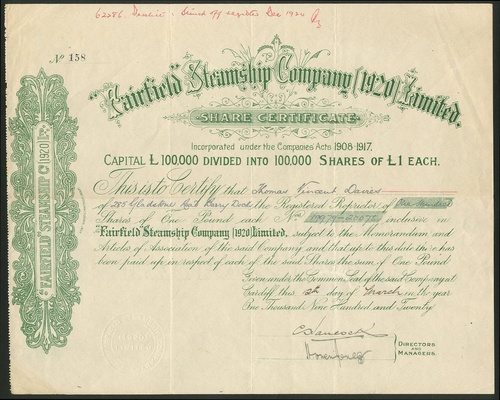 struck off register Dec 1934
No 158
"Fairfield" Steamship Company (1920) Limited.
SHARE CERTIFICATE
Incorporated under the Companies Acts 1908-1917.
CAPITAL £ 100,000 DIVIDED INTO 100,000 SHARES OF £1 EACH.
This is to Certify that Thomas Vincent Davies
of 285 Gladstone Barry Dock the Registered Proprietor of One Hundred
Shares of One Pound each Nos inclusive in
"Fairfield" Steamship Company (1920) Limited. subject to the Memorandum and
Articles of Association of the said Company and that up to this date there has
been paid up in respect of each of the said Shares the sum of One Pound
Given under the Common Seal of the said Company at
Cardiff this day of March in the year
One Thousand Nine Hundred and Twenty
DIRECTORS
AND
MANAGERS
"FAIRFIELD" STEAMSHIP Co (1920) Ld